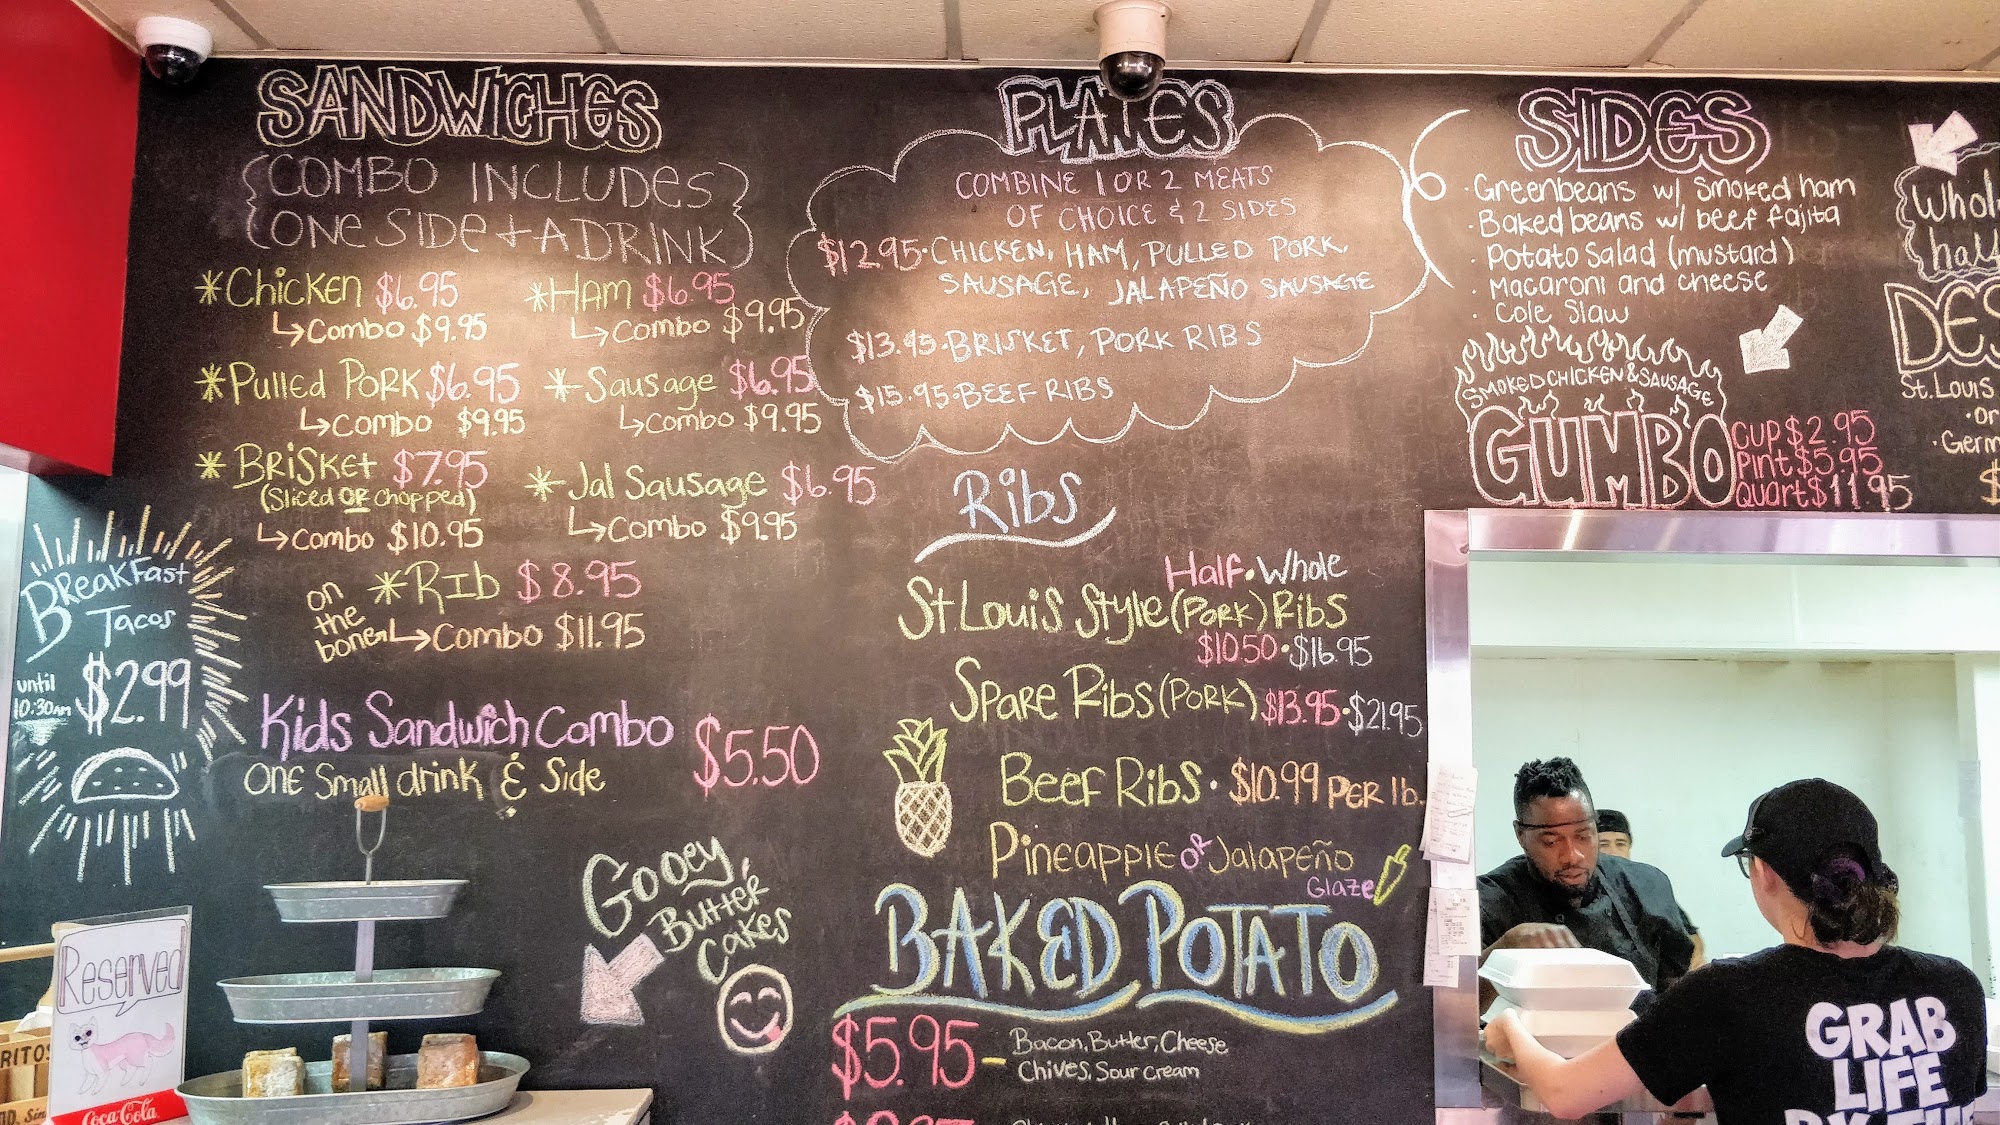 SANDWICHES
COMBO INCLUDES
ONE SIDE + A DRINK
*Chicken $6.95
↳Combo $9.95
*HAM $6.95
↳Combo $9.95
*Pulled PORK $6.95
↳Combo $9.95
*Sausage $6.95
↳Combo $9.95
*BRiSKET $7.95
(Sliced OR chopped)
↳Combo $10.95
*Jal Sausage $6.95
↳Combo $9.95
on
the
bone
*RIb $8.95
↳Combo $11.95
Kids Sandwich Combo $5.50
ONE Small drink & Side
BREAKFAST
TACOS
until
10:30AM
$2.99
Gooey
Butter
Cakes
Reserved
Coca-Cola
RITOS
PLATES
COMBINE 1 OR 2 MEATS
OF CHOICE & 2 SIDES
$12.95·CHICKEN, HAM, PULLED PORK,
SAUSAGE, JALAPEÑO SAUSAGE
$13.95·BRISKET, PORK RIBS
$15.95·BEEF RIBS
Ribs
Half·Whole
St. Louis Style (PORK) Ribs
$10.50·$16.95
SPARE Ribs (PORK) $13.95·$21.95
BEEF RIBS·$10.99 PER lb.
PINEAPPLE OR JalapEño
Glaze
BAKED POTATO
$5.95– Bacon, Butter, Cheese
Chives, Sour cream
SIDES
·Greenbeans w/ smoked ham
·Baked beans w/ beef fajita
·Potato Salad (mustard)
·Macaroni and cheese
·Cole Slaw
SMOKED CHICKEN & SAUSAGE
GUMBO
CUP $2.95
Pint $5.95
Quart $11.95
Whol
half
DES
St. Louis
·or
·Germ
$
GRAB
LIFE
BY THE